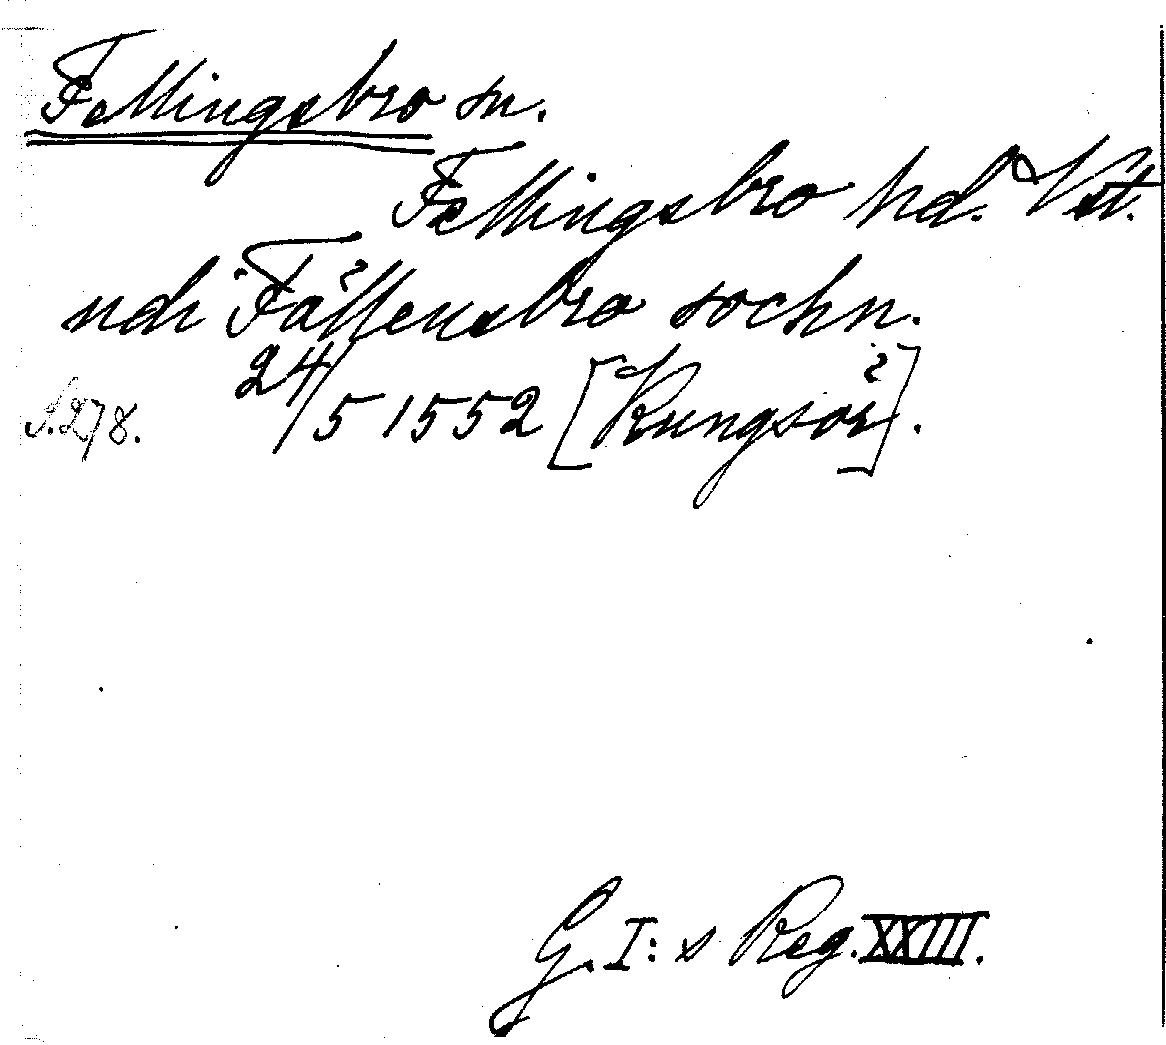 Fellingsbro sn.
Fellingsbro hd. Vstm.
udi Fällensbro sochn.
S. 278. 24/5 1552 [Kungsör].
G. I:s Reg. XXIII.